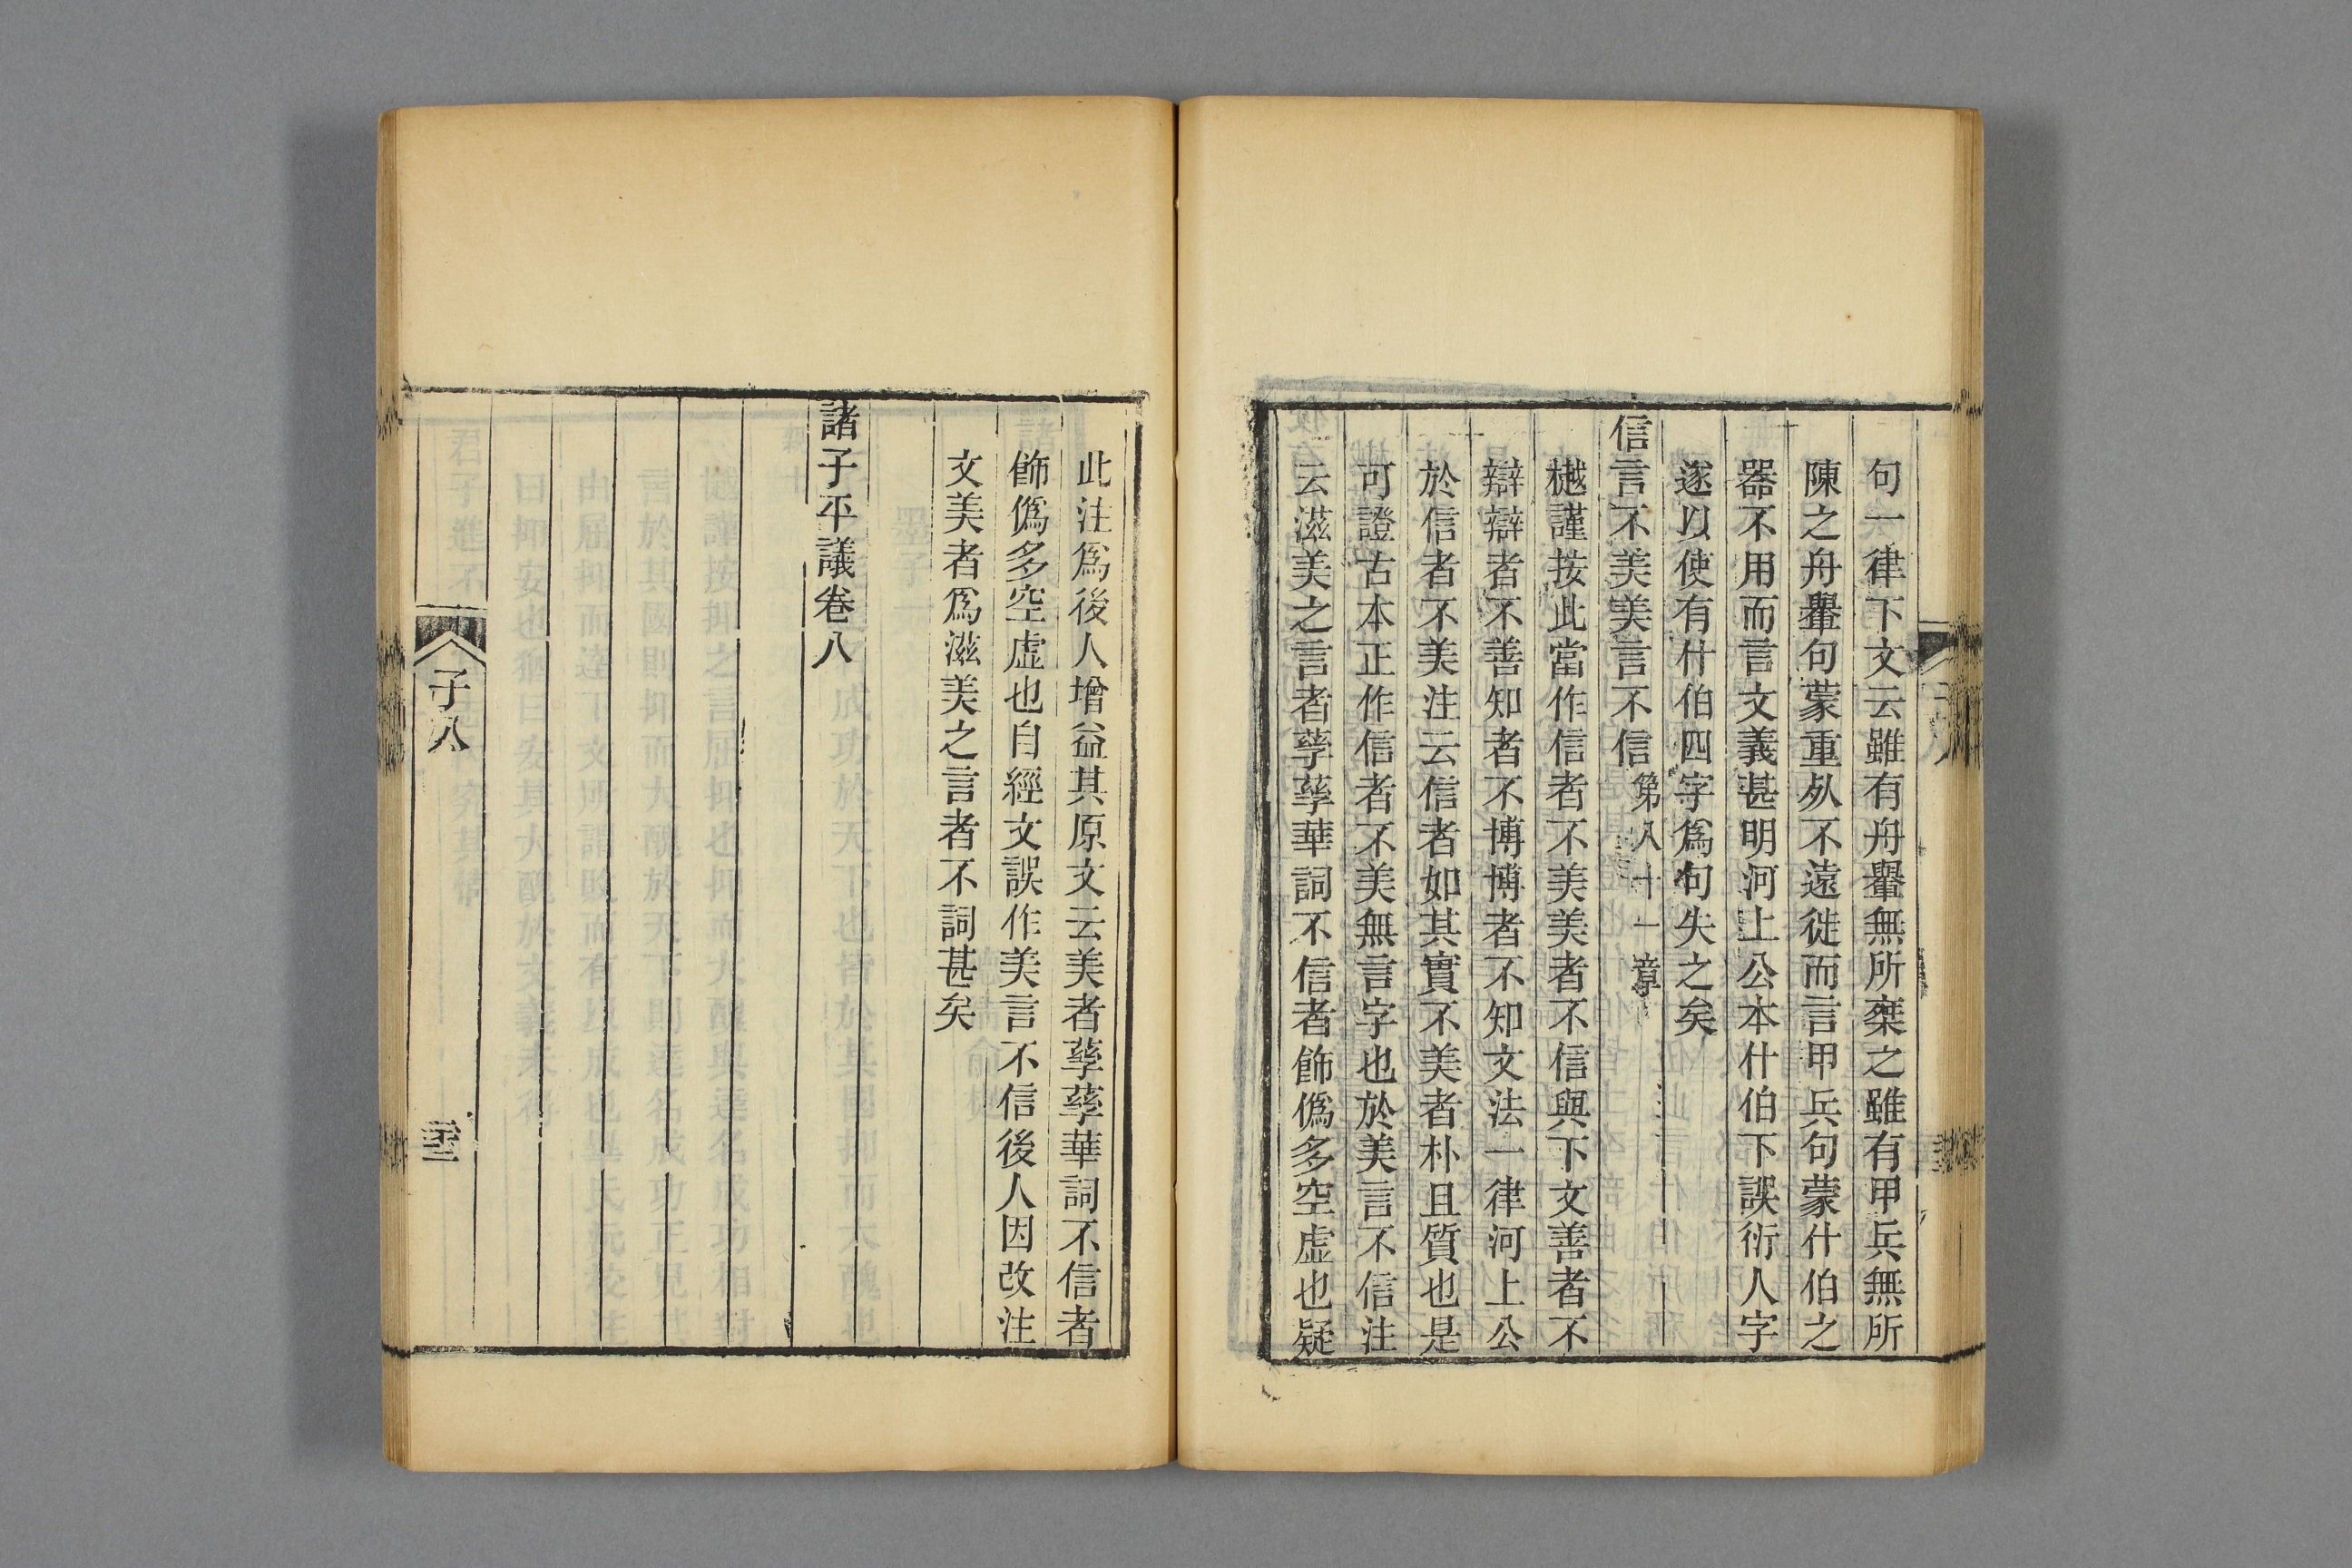 句一律下文云雖有舟轝無所椉之雖有甲兵無所
陳之舟轝句蒙重夗不遠徙而言甲兵句蒙什伯之
器不用而言文義甚明河上公本什伯下誤衍人字
遂以使有什伯四字爲句失之矣
信言不美美言不信第八十一章
樾謹按此當作信者不美美者不信與下文善者不
辯辯者不善知者不博博者不知文法一律河上公
於信者不美注云信者如其實不美者朴且質也是
可證古本正作信者不美無言字也於美言不信注
云滋美之言者孳孳華詞不信者飾僞多空虛也疑
此注爲後人增益其原文云美者孳孳華詞不信者
飾僞多空虛也自經文誤作美言不信後人因改注
文美者爲滋美之言者不詞甚矣
諸子平議卷八
子八